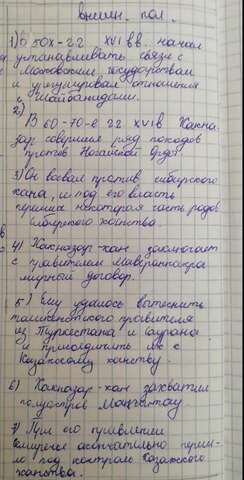 внешн. пол.
1) В 50х-гг. XVI вв. начал
устанавливать связи с
Московским государством
и урегулировал отношения
с Шайбанидами.
2)
В 60-70-е гг XVI в. Хакна-
зар совершил ряд походов
против Ногайской Орды
3) Он воевал против сибирского
хана, и под его власть
перешла некоторая часть родов
Сибирского ханства.
4) Хакназар-хан заключает
с правителем Мавераннахра
мирный договор.
5) Ему удалось вытеснить
ташкентского правителя
из Туркестана и Саурана
и присоединить их с
Казахскому ханству.
6) Хакназар-хан захватил
полуостров Мангыстау
7) При его правлении
Семиречье окончательно переш-
ло под контроль Казахского
ханства.